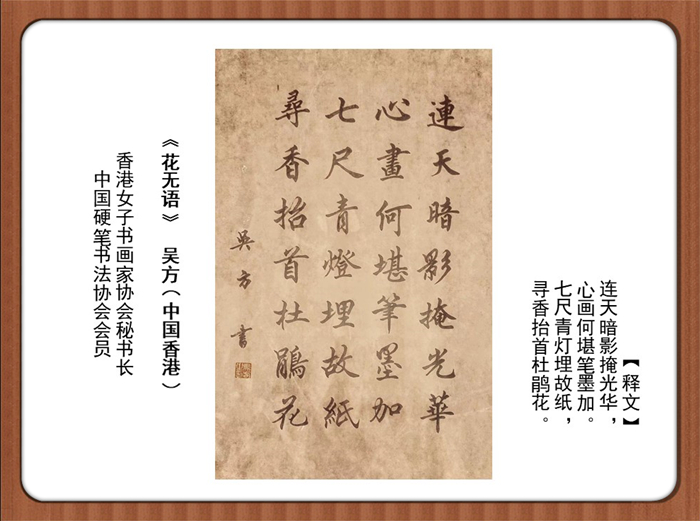 【释文】
连天暗影掩光华，
心画何堪笔墨加。
七尺青灯埋故纸，
寻香抬首杜鹃花。
連天暗影掩光華
心畫何堪筆墨加
七尺青燈埋故紙
尋香抬首杜鵑花
吳方書
《花无语》 吴方（中国香港）
香港女子书画家协会秘书长
中国硬笔书法协会会员